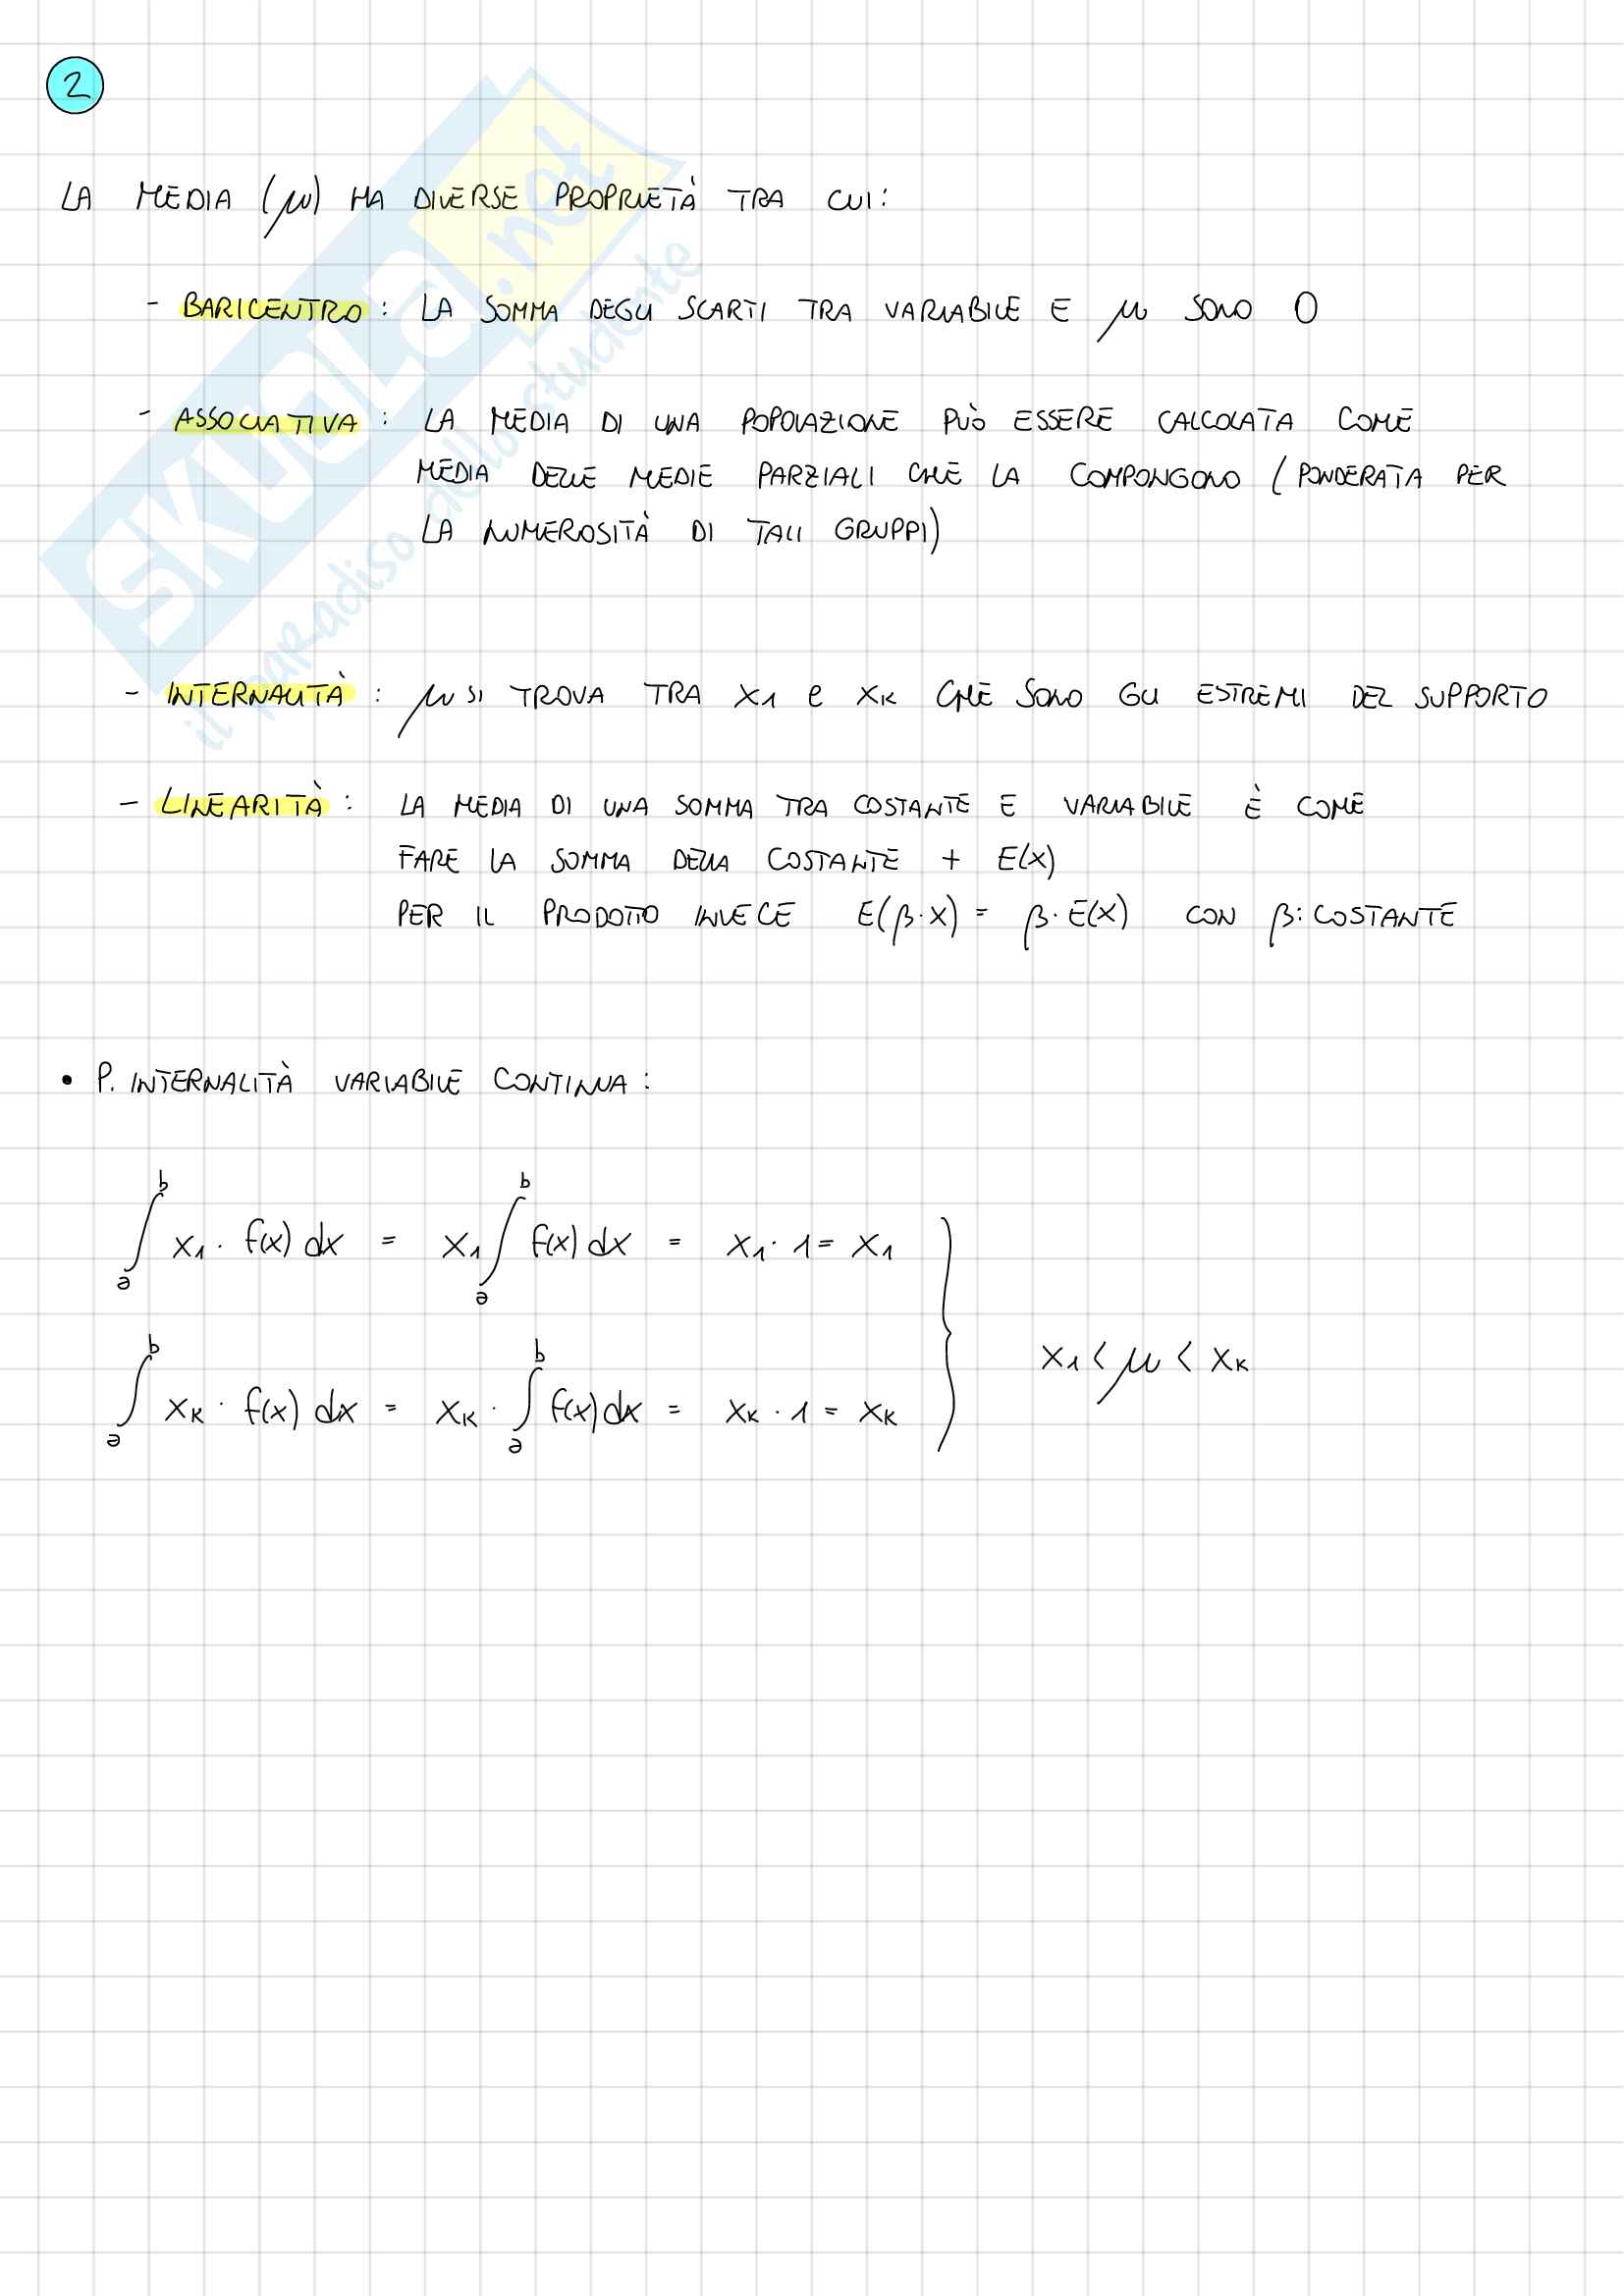 2
LA MEDIA (μ) HA DIVERSE PROPRIETÀ TRA CUI:
- BARICENTRO: LA SOMMA DEGLI SCARTI TRA VARIABILE E μ SONO 0
- ASSOCIATIVA: LA MEDIA DI UNA POPOLAZIONE PUÒ ESSERE CALCOLATA COME
MEDIA DELLE MEDIE PARZIALI CHE LA COMPONGONO (PONDERATA PER
LA NUMEROSITÀ DI TALI GRUPPI)
- INTERNALITÀ: μ SI TROVA TRA X1 e XK CHE SONO GLI ESTREMI DEL SUPPORTO
- LINEARITÀ: LA MEDIA DI UNA SOMMA TRA COSTANTE E VARIABILE È COME
FARE LA SOMMA DELLA COSTANTE + E(X)
PER IL PRODOTTO INVECE E(β·X) = β·E(X) CON β: COSTANTE
• P. INTERNALITÀ VARIABILE CONTINUA:
∫ₐᵇ X₁ · f(x) dx = X₁ ∫ₐᵇ f(x) dx = X₁ · 1 = X₁
∫ₐᵇ XK · f(x) dx = XK · ∫ₐᵇ f(x) dx = XK · 1 = XK
X₁ < μ < XK
SKUOLA.net
il paradiso dello studente